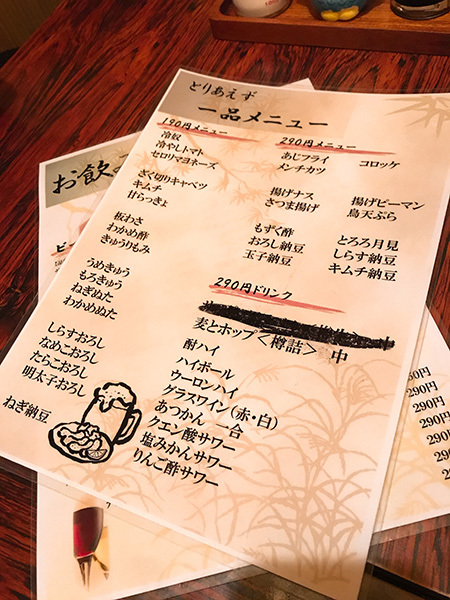 とりあえず
一品メニュー
190円メニュー
冷奴
冷やしトマト
セロリマヨネーズ
ざく切りキャベツ
キムチ
甘らっきょ
板わさ
わかめ酢
きゅうりもみ
うめきゅう
もろきゅう
ねぎぬた
わかめぬた
しらすおろし
なめこおろし
たらこおろし
明太子おろし
ねぎ納豆
290円メニュー
あじフライ コロッケ
メンチカツ
揚げナス 揚げピーマン
さつま揚げ 鳥天ぷら
もずく酢 とろろ月見
おろし納豆 しらす納豆
玉子納豆 キムチ納豆
290円ドリンク
中
麦とホップ<樽詰> 中
酎ハイ
ハイボール
ウーロンハイ
グラスワイン(赤・白)
あつかん 一合
クエン酸サワー
塩みかんサワー
りんご酢サワー
お飲
290円
290円
290円
290円